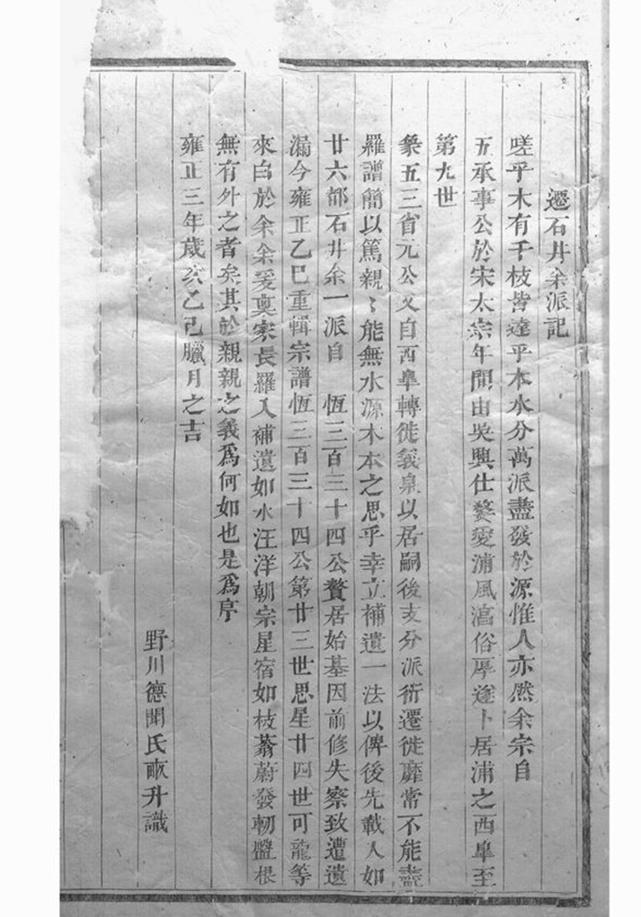 遷石井余派記
嗟乎木有千枝皆達乎本水分萬派盡發於源惟人亦然余宗自
五承事公於宋太宗年間由吳興仕婺愛浦風湻俗厚遂卜居浦之西臯至
第九世
桑五三省元公又自西臯轉徙義泉以居嗣後支分派衍遷徙靡常不能盡
羅譜簡以篤親〻能無水源木本之思乎幸立補遺一法以俾後先載入如
廿六都石井余一派自 恆三百三十四公贅居始基因前修失察致遭遺
漏今雍正乙巳重輯宗譜恆三百三十四公第廿三世思星廿四世可龍等
來白於余余爰與宗長羅入補遺如水汪洋朝宗星宿如枝蓊蔚發軔盤根
無有外之者矣其於親親之義爲何如也是爲序
雍正三年歲次乙巳臘月之吉
野川德聞氏畞升識